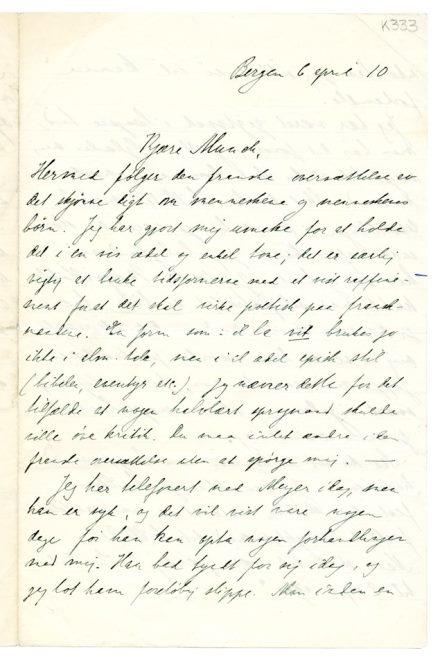 K333
Bergen 6 april 10
Kjære Munch,
Hermed følger den franske oversættelse av
det skjønne digt om menneskene og menneskenes
børn. Jeg har gjort mig umake for at holde
det i en vis ædel og enkel tone; det er særlig
vigtig at bruke tidsformerne med et vist raffine-
ment for at det skal virke poetisk paa fransk-
mændene. En form som: il la vit brukes jo
ikke i alm. tale, men i et ædel episk stil
(bibelen, eventyr etc.). Jeg nævner dette for det
tilfælde at nogen halvlært sprogmand skulde
ville øve kritik. Du maa intet ændre i den
franske oversættelse uten at spørge mig. —
Jeg har telefonert med Meyer idag, men
han er syk, og det vil vist vare nogen
dage før han kan opta nogen forhandlinger
med mig. Han bad tyndt for sig idag, og
jeg lot ham foreløbig slippe. Men inden en